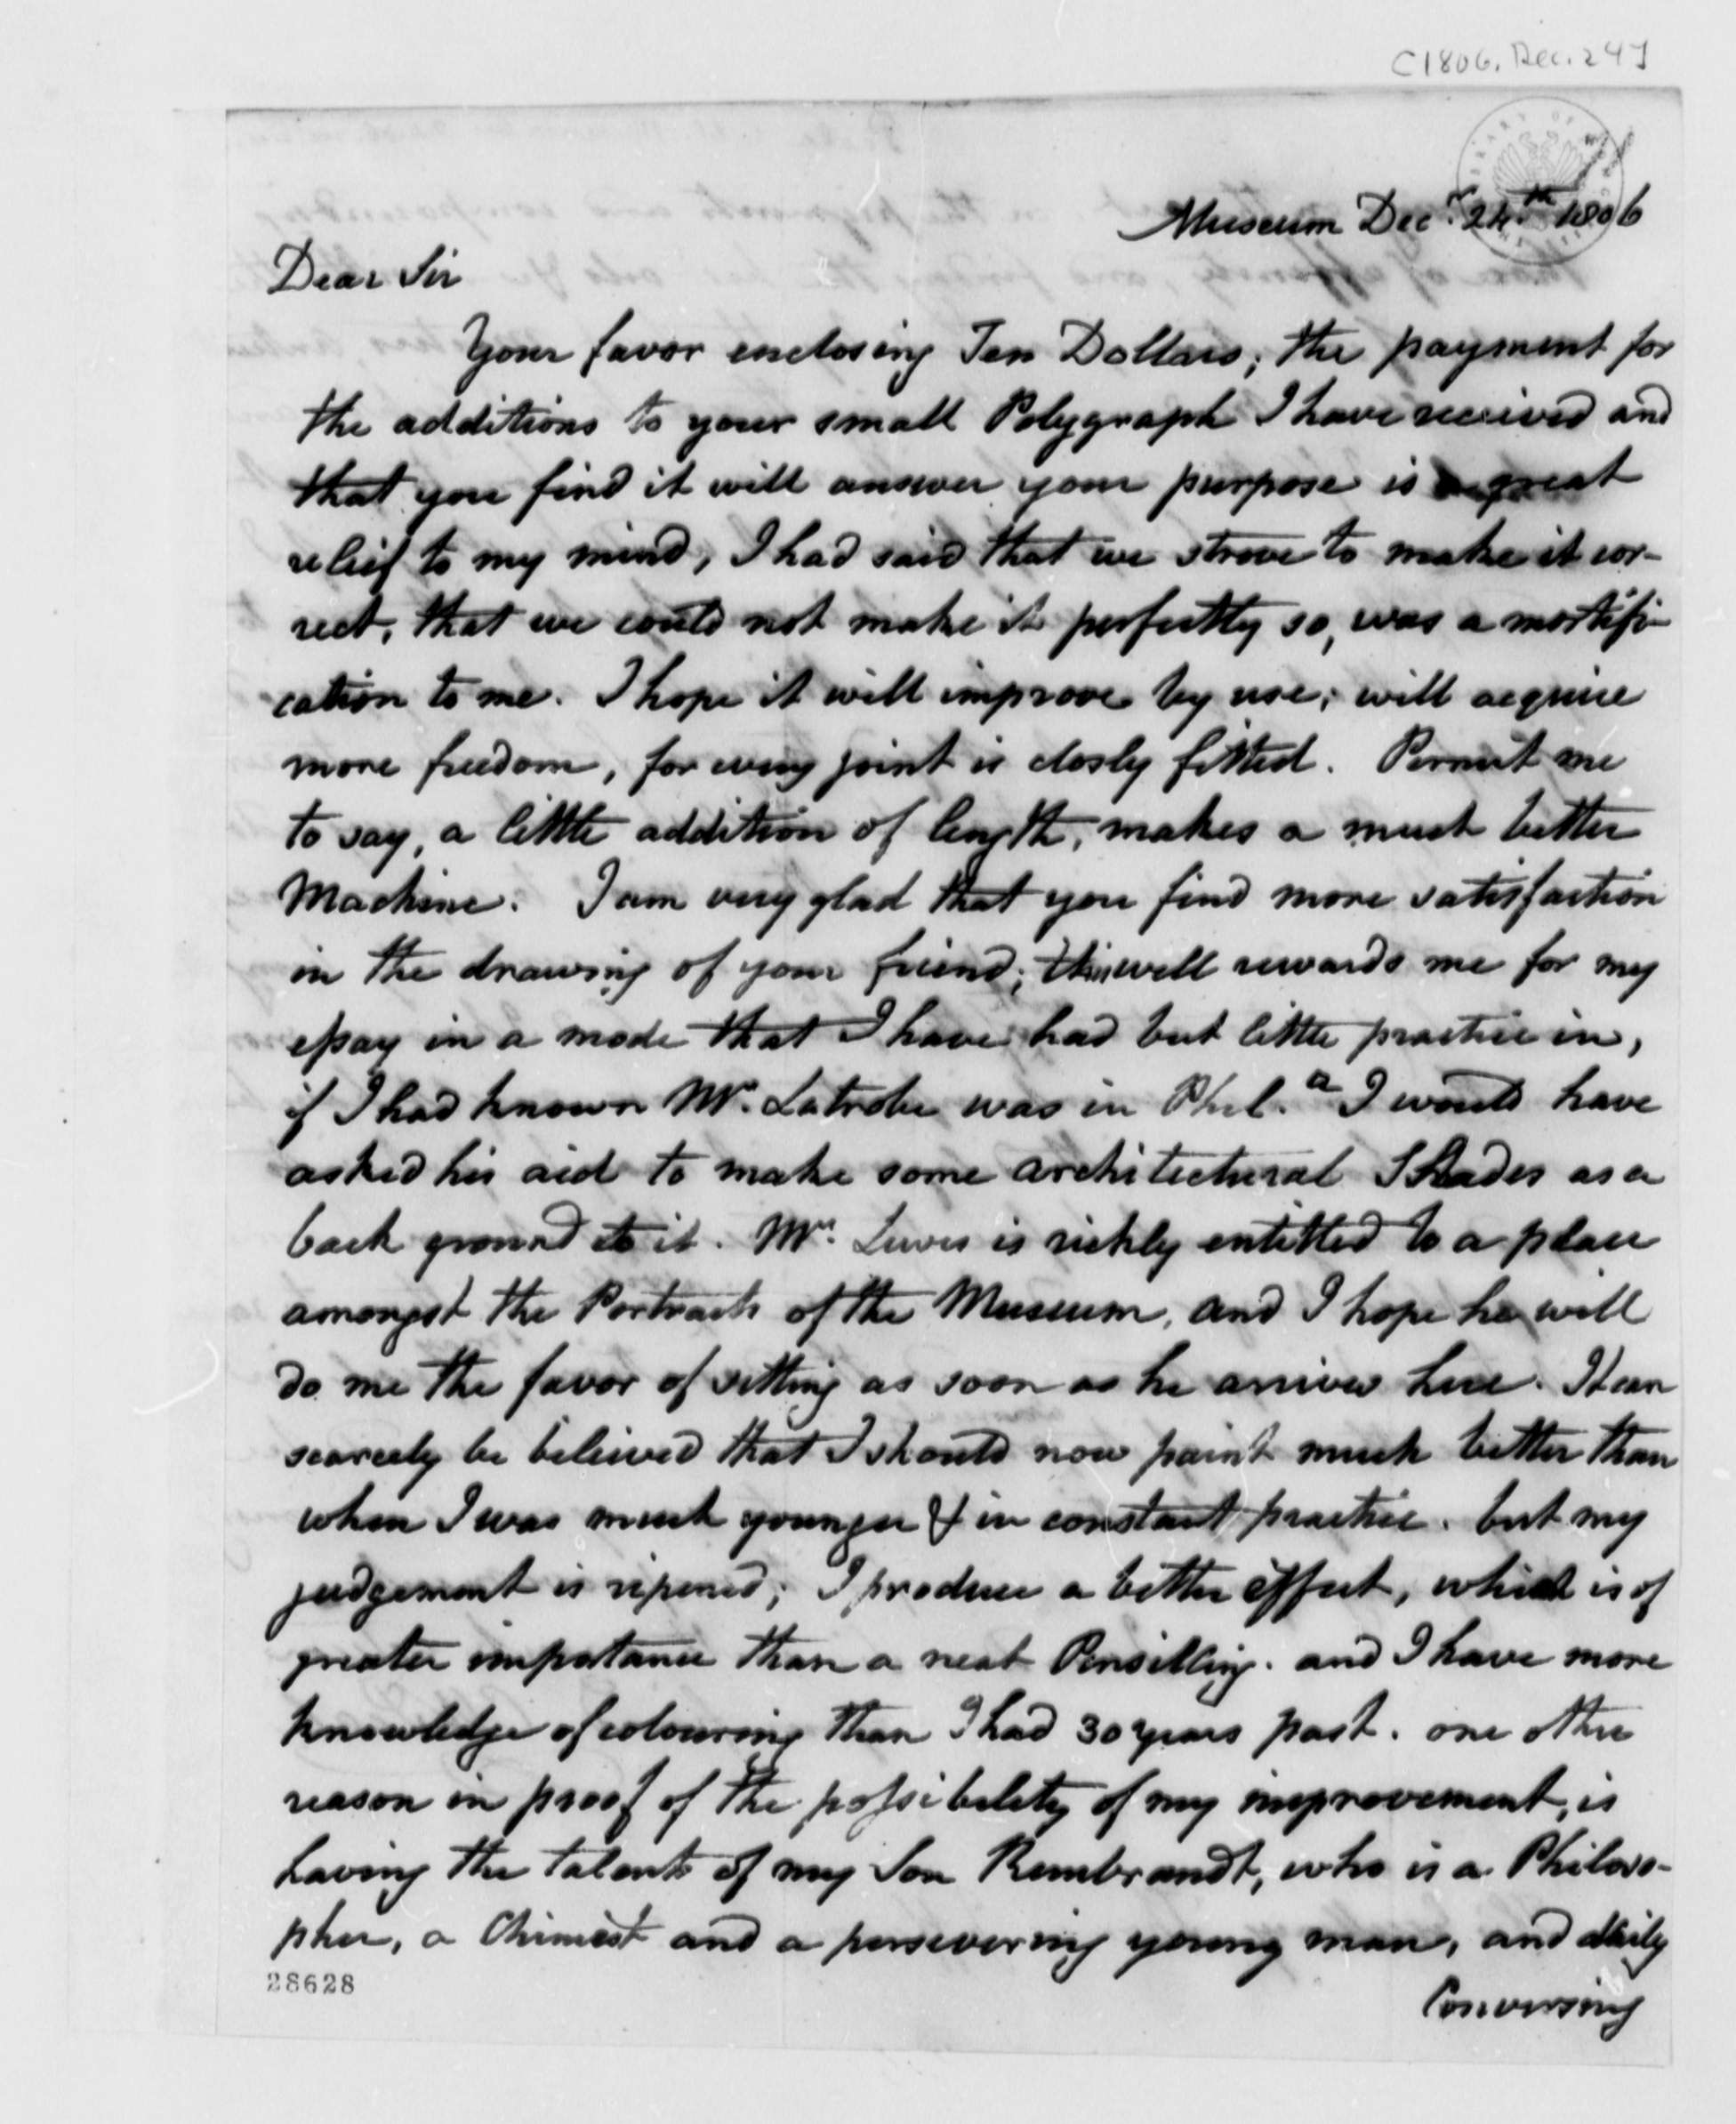 [1806, Dec. 24]
Museum Decr. 24th 1806
Dear Sir
Your favor enclosing Ten Dollars, the payment for
the additions to your small Polygraph I have received and
that you find it will answer your purpose is a great
relief to my mind, I had said that we strove to make it cor-
rect, that we could not make it perfectly so, was a mortifi-
cation to me. I hope it will improve by use; will acquire
more freedom, for every joint is closly fitted. Permit me
to say, a little addition of length, makes a much better
Machine. I am very glad that you find more satisfaction
in the drawing of your friend; this well rewards me for my
essay in a mode that I have had but little practice in,
if I had known Mr. Latrobe was in Phila. I would have
asked his aid to make some architectural Shades as a
back ground to it. Mr. Lewis is richly entitled to a place
amongst the Portraits of the Museum, and I hope he will
do me the favor of sitting as soon as he arrives here. It can
scarcely be believed that I should now paint much better than
when I was much younger & in constant practice. but my
judgement is ripened; I produce a better effect, which is of
greater impotance than a neat Pensilling. and I have more
knowledge of colouring than I had 30 years past. one other
reason in proof of the possibility of my improvement, is
having the talents of my Son Rembrandt, who is a Philoso-
pher, a Chimist and a persevering young man, and daily
28628
Conversing